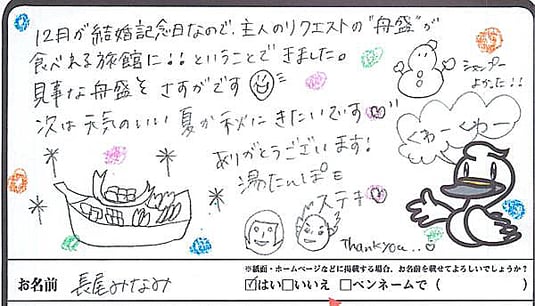 12月が結婚記念日なので、主人のリクエストの"舟盛"が
食べれる旅館に!!ということできました。
見事な舟盛そ さすがです
次は天気のいい夏か秋にきたいです
ありがとうございます!
湯たんぽも
ステキ
Thankyou..
シャンプー
よかった!!
くわーくわー
お名前 長尾みなみ
※紙面・ホームページなどに掲載する場合、お名前を載せてよろしいでしょうか?
☑はい□いいえ □ペンネームで ( )